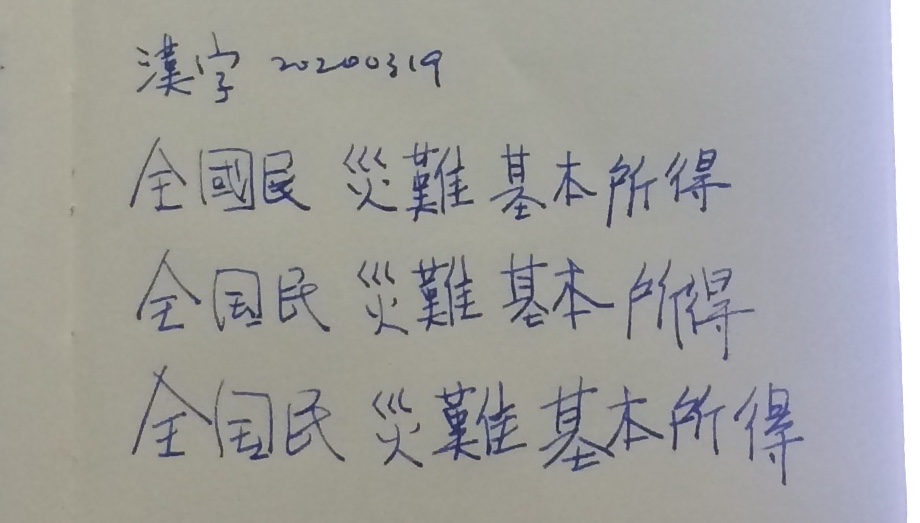 漢字 20200319
全國民 災難 基本所得
全国民 災難 基本所得
全国民 災難 基本所得